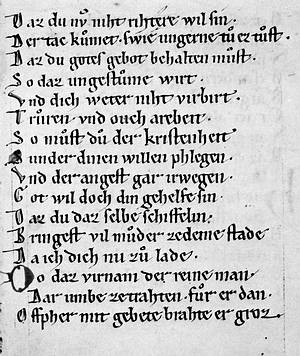 Daz du nv̊ niht rihtere wil sin.
Der tac kůmet. swie ungerne tů ez tůst.
Daz du gotes gebot behalten můst.
So daz ungestůme wirt.
Vnd dich weter niht virbirt.
Trůren vnd ouch arebeit
So můst dů der kristenheit
Sunder dinen willen phlegen.
Vnd der angest gar irwegen.
Got wil doch din gehelfe sin.
Daz dů daz selbe schiffelin.
Bringest vil můder ze deme stade
Da ich dich nu zů lade.
Do daz virnam der reine man.
Dar umbe ze trahten. fůr er dan.
Offpher mit gebete brahte er groz.